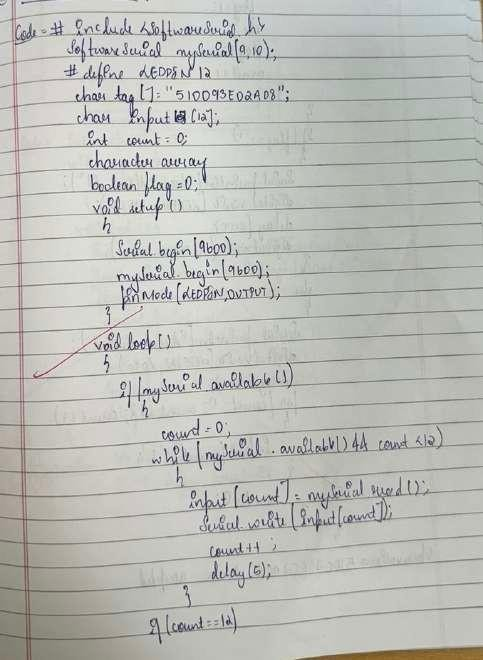 Code = # include <SoftwareSerial.h>
SoftwareSerial mySerial(9,10);
# define LEDPIN 12
char tag[] = "510093E02A08";
char input [12];
int count = 0;
character array
boolean flag = 0;
void setup ()
{
Serial.begin(9600);
mySerial.begin(9600);
pinMode(LEDPIN,OUTPUT);
}
void loop()
{
if (mySerial.available())
{
count = 0;
while (mySerial . available() && count <12)
{
input [count] = mySerial.read();
Serial.write(input[count]);
count++ ;
delay(5);
}
if (count==12)